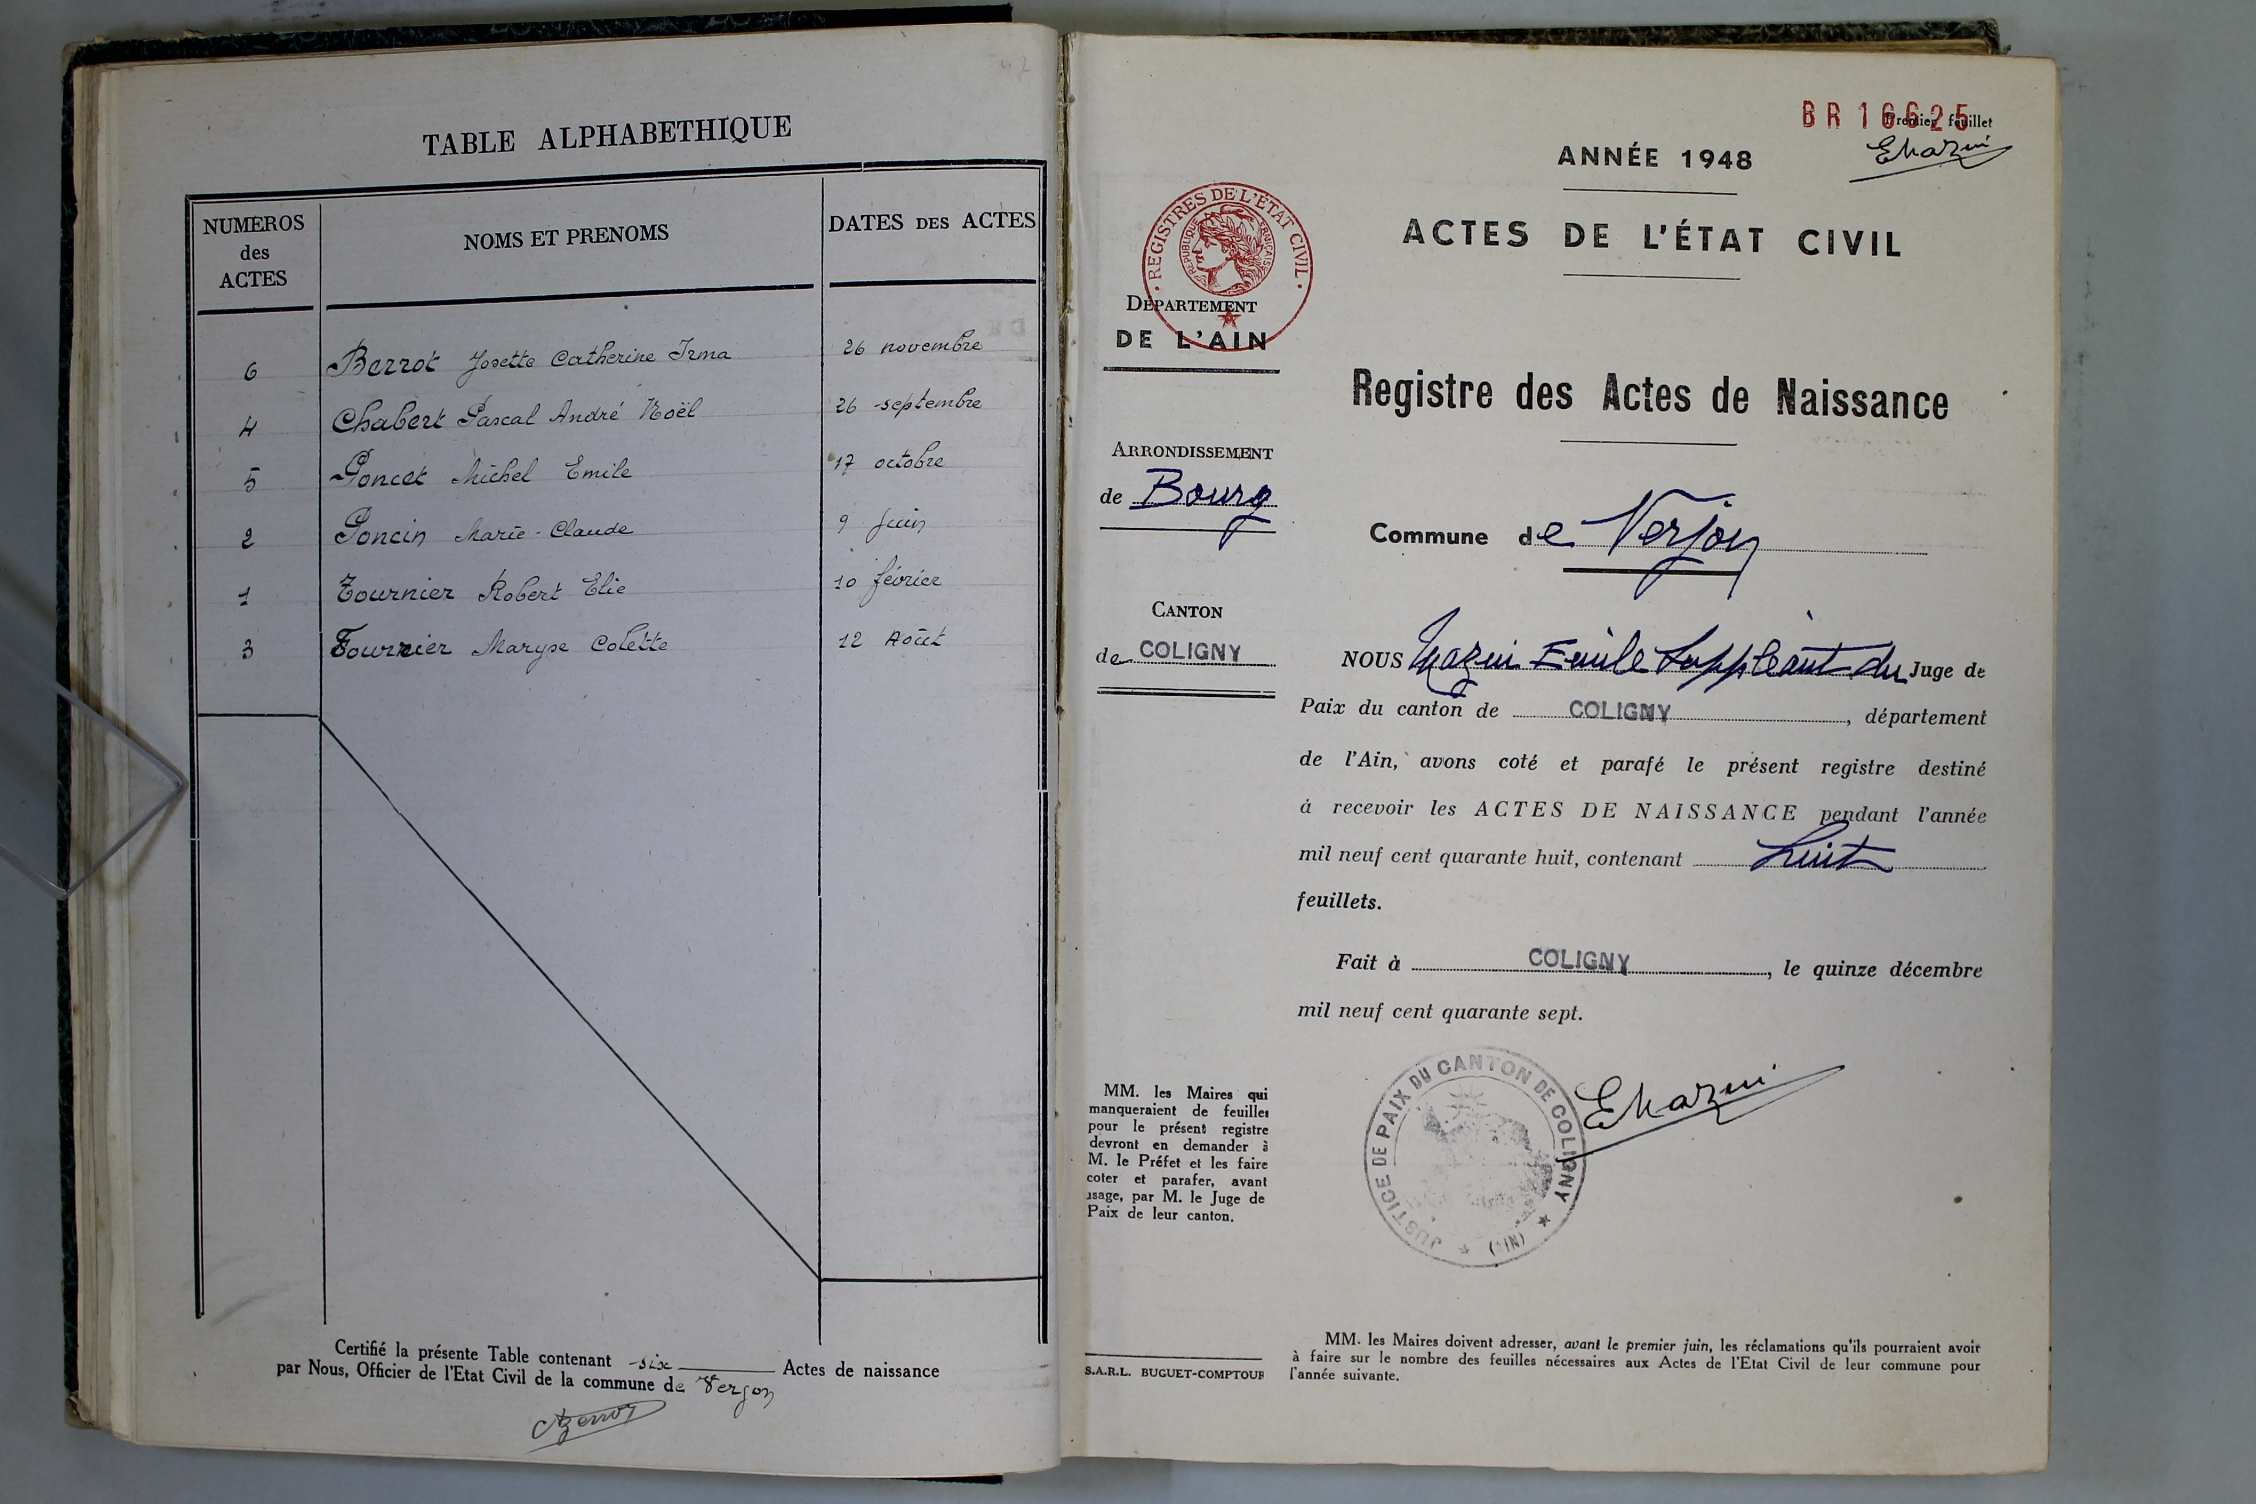 TABLE ALPHABETHIQUE
NUMEROS
des
ACTES
NOMS ET PRENOMS
DATES DES ACTES
6 Berrot Josette Catherine Irma 26 novembre
4 Chabert Pascal André Noël 26 septembre
5 Poncet Michel Emile 17 octobre
2 Poncin Marie-Claude 9 juin
1 Tournier Robert Elie 10 février
3 Tournier Maryse Colette 12 Août
Certifié la présente Table contenant six Actes de naissance
par Nous, Officier de l'Etat Civil de la commune de Verjon
BR 16625
Premier feuillet
EMazui
ANNÉE 1948
ACTES DE L'ÉTAT CIVIL
REGISTRES DE L'ÉTAT CIVIL
RÉPUBLIQUE FRANÇAISE
DÉPARTEMENT
DE L'AIN
Registre des Actes de Naissance
ARRONDISSEMENT
de Bourg
Commune de Verjon
CANTON
de COLIGNY
NOUS Mazui Emile Suppléant du Juge de
Paix du canton de COLIGNY, département
de l'Ain, avons coté et parafé le présent registre destiné
à recevoir les ACTES DE NAISSANCE pendant l'année
mil neuf cent quarante huit, contenant huit
feuillets.
Fait à COLIGNY, le quinze décembre
mil neuf cent quarante sept.
JUSTICE DE PAIX DU CANTON DE COLIGNY
(AIN)
EMazui
MM. les Maires qui
manqueraient de feuilles
pour le présent registre
devront en demander à
M. le Préfet et les faire
coter et parafer, avant
usage, par M. le Juge de
Paix de leur canton.
S.A.R.L. BUGUET-COMPTOUR
MM. les Maires doivent adresser, avant le premier juin, les réclamations qu'ils pourraient avoir
à faire sur le nombre des feuilles nécessaires aux Actes de l'Etat Civil de leur commune pour
l'année suivante.